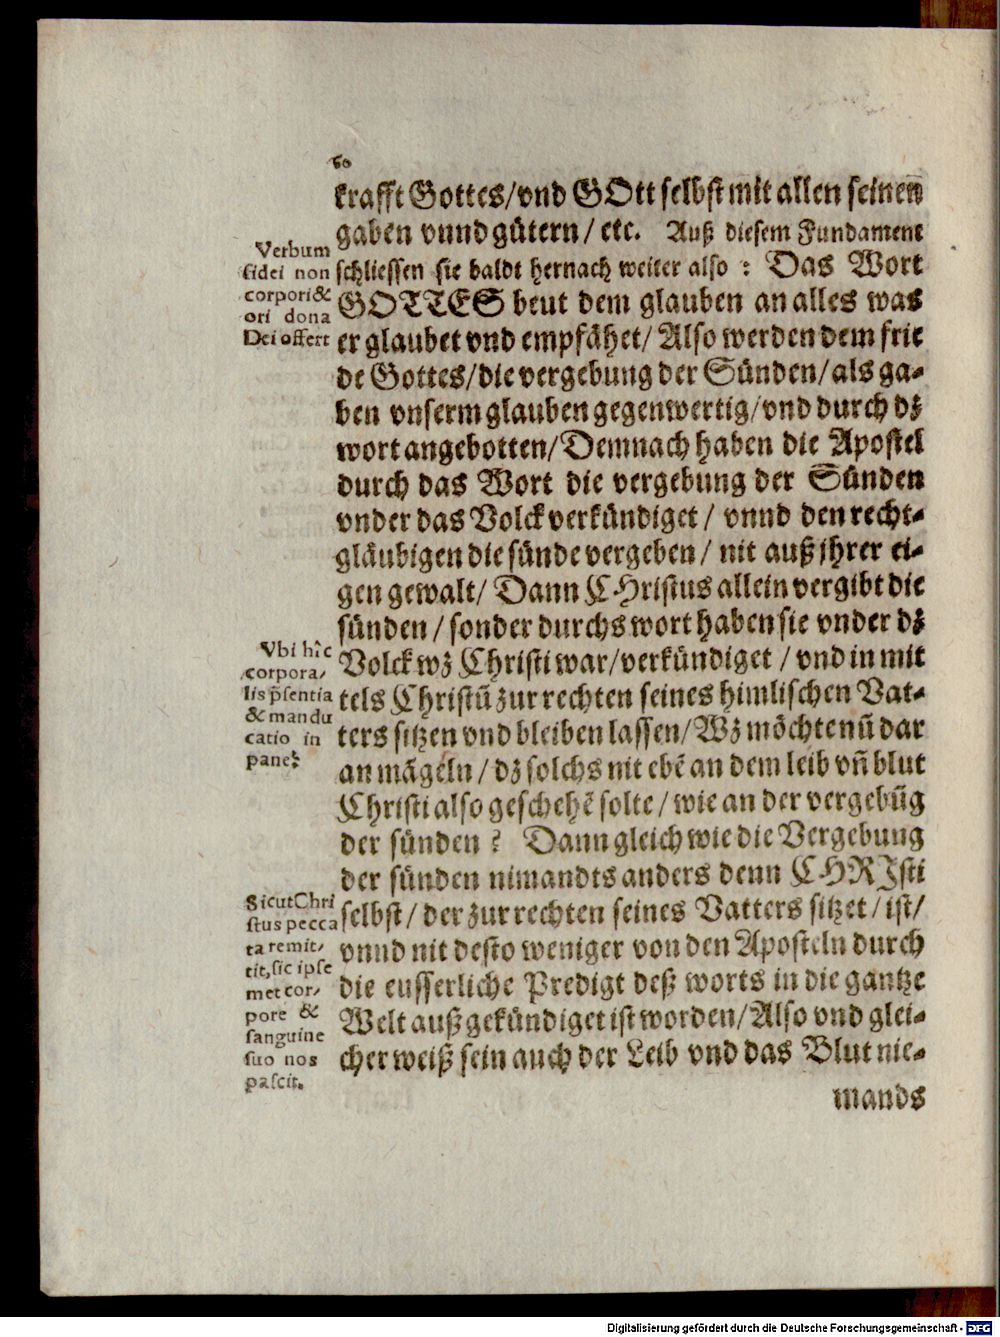 60
krafft Gottes/vnd GOtt selbst mit allen seinen
gaben vnnd gütern/ etc. Auß diesem Fundament
schliessen sie baldt hernach weiter also : Das Wort
GOTTES beut dem glauben an alles was
er glaubet vnd empfähet/ Also werden dem frie
de Gottes/die vergebung der Sünden/als ga-
ben vnserm glauben gegenwertig/vnd durch dz
wort angebotten/Demnach haben die Apostel
durch das Wort die vergebung der Sünden
vnder das Volck verkündiget / vnnd den recht-
gläubigen die sünde vergeben/ nit auß jhrer ei-
gen gewalt/ Dann CHristus allein vergibt die
sünden / sonder durchs wort haben sie vnder dz
Volck wz Christi war/verkündiget / vnd in mit
tels Christū zur rechten seines himlischen Vat-
ters sitzen vnd bleiben lassen/Wz möchte nū dar
an mägeln / dz solchs nit ebē an dem leib vñ blut
Christi also geschehē solte / wie an der vergebūg
der sünden ? Dann gleich wie die Vergebung
der sünden nimandts anders denn CHRIsti
selbst/ der zur rechten seines Vatters sitzet/ist/
vnnd nit desto weniger von den Aposteln durch
die eusserliche Predigt deß worts in die gantze
Welt auß gekündiget ist worden/Also vnd glei-
cher weiß sein auch der Leib vnd das Blut nie-
mands
Verbum
fidei non
corpori&
ori dona
Dei offert
Vbi hîc
corpora-
lis p̄sentia
& mandu
catio in
pane?
Sicut Chri
stus pecca
ta remit-
tit, sic ipse
met cor-
pore &
sanguine
suo nos
pascit.
Digitalisierung gefördert durch die Deutsche Forschungsgemeinschaft - DFG